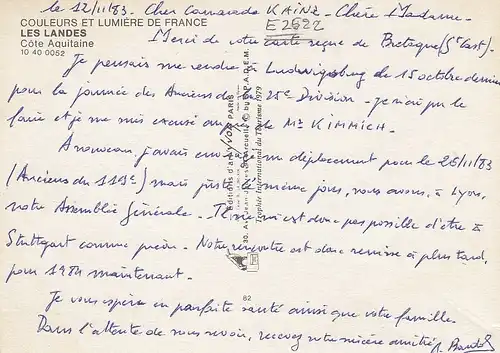 le 12/11/83. Cher Camarade KAINZ - Chère Madame -
E2522
COULEURS ET LUMIÈRE DE FRANCE
LES LANDES
Côte Aquitaine
10 40 0052
Merci de votre carte reçue de Bretagne (St Cast).
Je pensais me rendre à Ludwigsburg le 15 octobre dernier
pour la journée des Anciens de la 25e Division - je n'ai pu le
faire et je me suis excusé auprès de Mr KIMMICH.
A nouveau j'avais envisagé un déplacement pour le 26/11/83
(Anciens du 119e) mais juste le même jour, nous avons, à Lyon,
notre Assemblée Générale - Il ne m'est donc pas possible d'être à
Stuttgart comme prévu. Notre rencontre est donc remise à plus tard,
pour 1984 maintenant.
Je vous espère en parfaite santé ainsi que votre famille.
Dans l'attente de vous revoir, recevez notre sincère amitié
Editions d'art YVON PARIS
Trophée International du Tourisme 1979
82